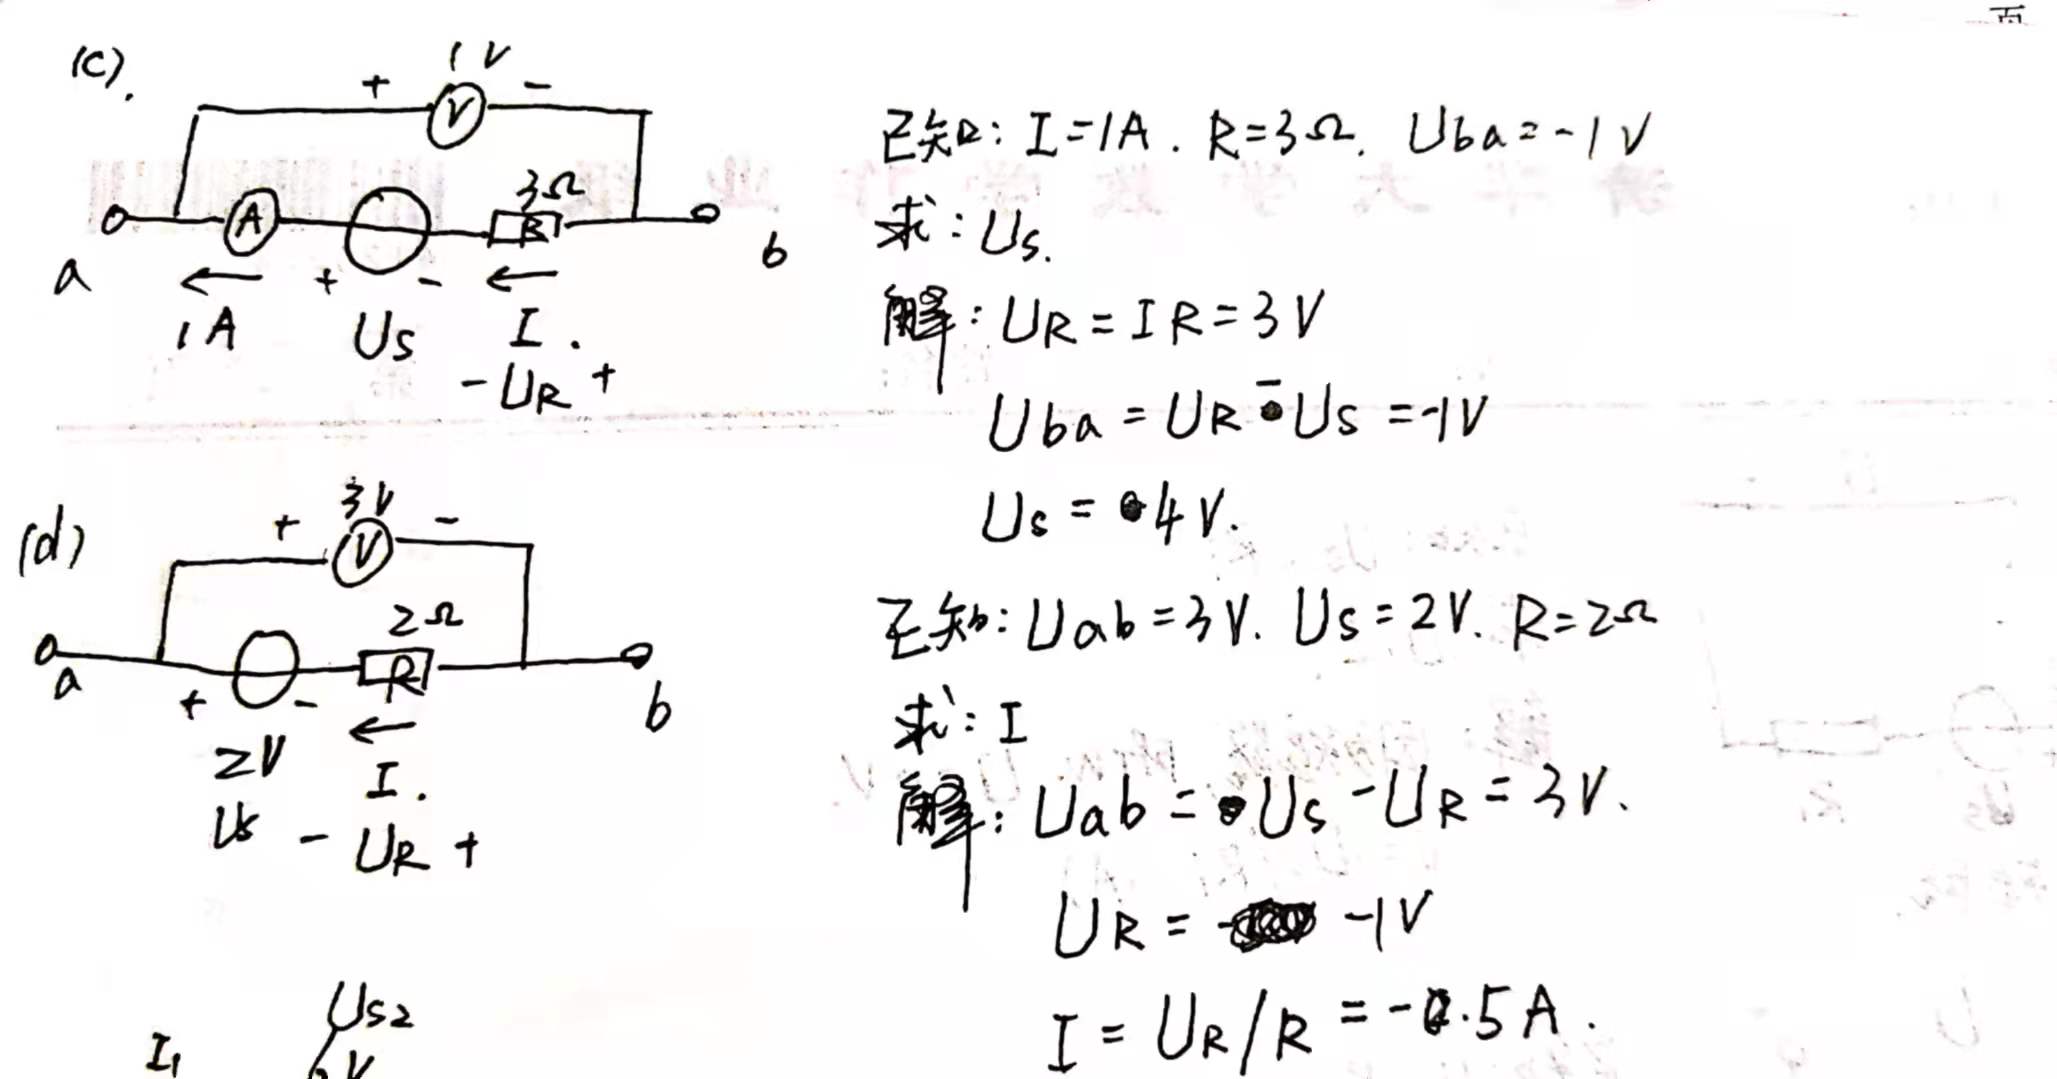 页
(c).
1V
+ V -
3Ω
A R
a + - b
← ←
1A Us I.
- UR +
已知: I=1A. R=3Ω. Uba=-1V
求: Us.
解: UR=IR=3V
Uba=UR-Us=-1V
Us=4V.
(d)
3V
+ V -
2Ω
R
a + - b
←
2V I.
Us - UR +
已知: Uab=3V. Us=2V. R=2Ω
求: I
解: Uab=Us-UR=3V.
UR= -1V
I=UR/R=-0.5A.
Us2
I1 V